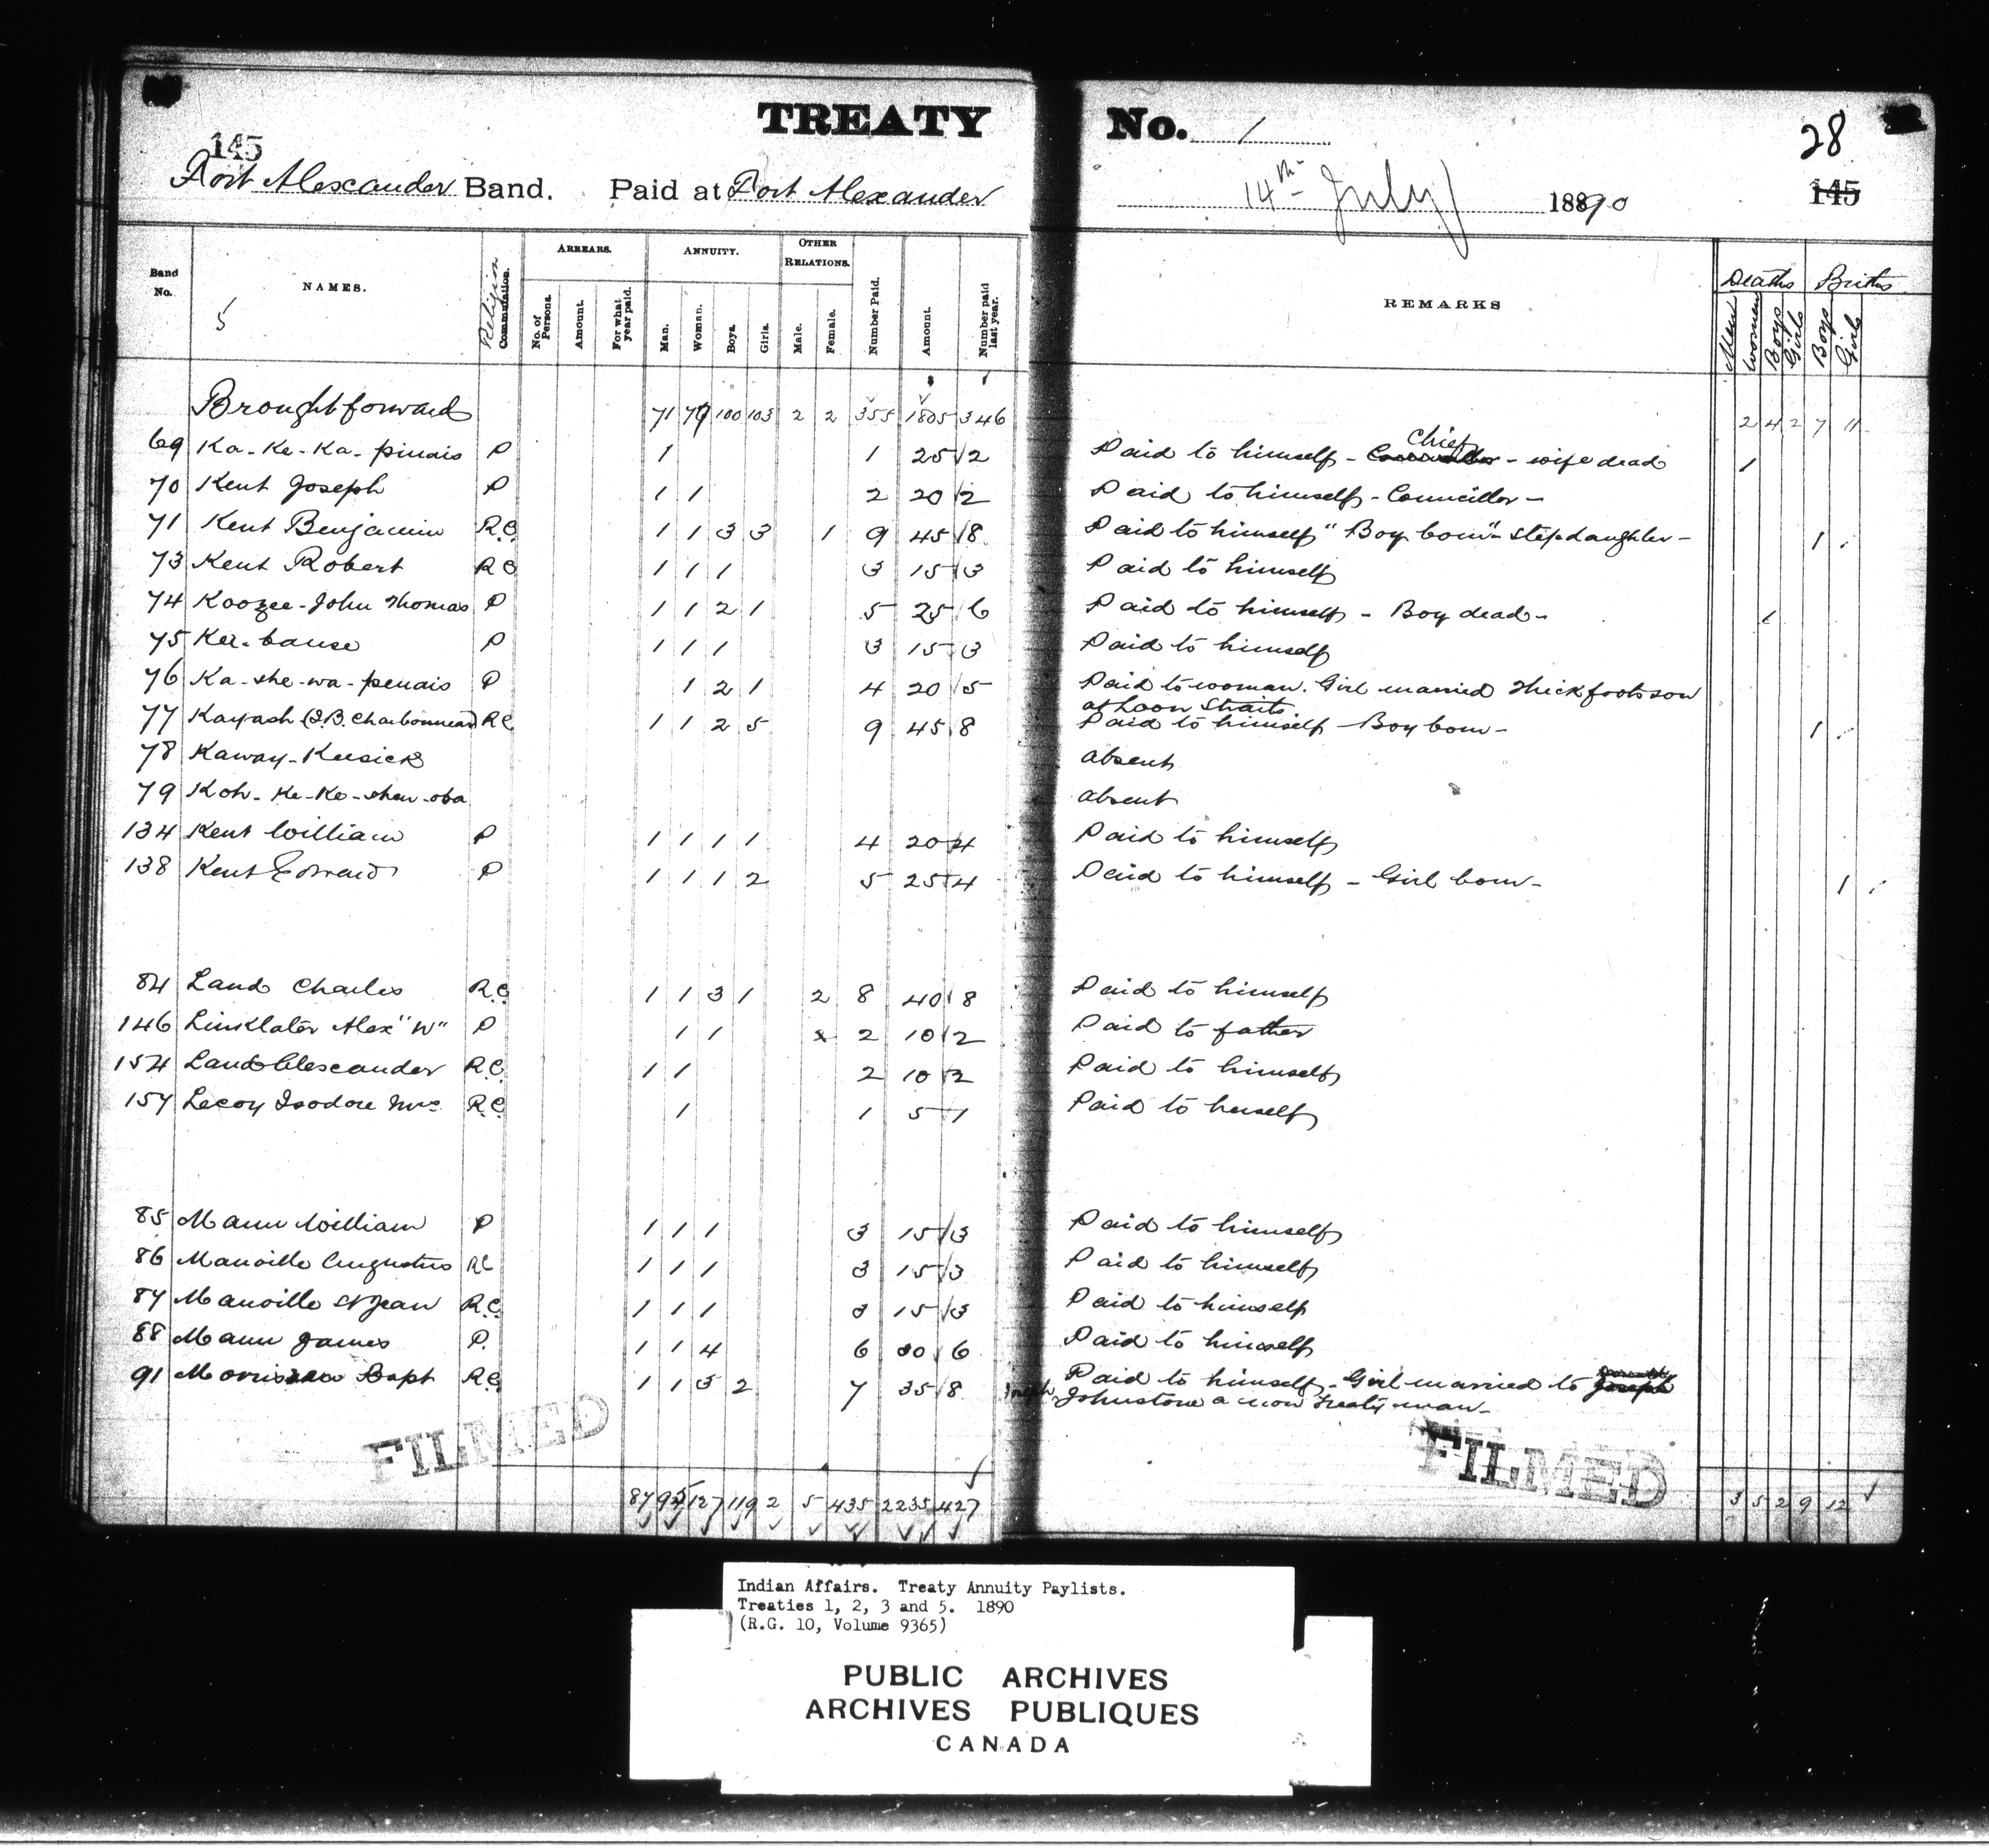 TREATY No. 1
28
145
145
Fort Alexander Band. Paid at Fort Alexander 14th July 1890
Band No. NAMES. Religion Commutation. ARREARS. No. of Persons. Amount. For what year paid. ANNUITY. Man. Woman. Boys. Girls. OTHER RELATIONS. Male. Female. Number Paid. Amount. Number paid last year. REMARKS Deaths Men Women Boys Girls Births Boys Girls
5
Brought forward 71 79 100 103 2 2 355 1805 346 2 4 2 7 11
69 Ka-Ke-Ka-pinais P 1 1 25 2 Paid to himself - Chief - wife dead 1
70 Kent Joseph P 1 1 2 20 2 Paid to himself - Councillor -
71 Kent Benjamin R.C. 1 1 3 3 1 9 45 8 Paid to himself "Boy born" - stepdaughter - 1
73 Kent Robert R C 1 1 1 3 15 3 Paid to himself
74 Koozee-John Thomas P 1 1 2 1 5 25 6 Paid to himself - Boy dead - 1
75 Kee-bause P 1 1 1 3 15 3 Paid to himself
76 Ka-she-wa-penais P 1 2 1 4 20 5 Paid to woman. Girl married Thickfoots son
at Loon Straits
77 Kayash (J.B. Charbonneau) R C 1 1 2 5 9 45 8 Paid to himself - Boy born - 1
78 Kaway-Keesick absent
79 Koh-Ke-Ke-shew-oba absent
134 Kent William P 1 1 1 1 4 20 4 Paid to himself
138 Kent Edward P 1 1 1 2 5 25 4 Paid to himself - Girl born - 1
84 Land Charles R.C. 1 1 3 1 2 8 40 8 Paid to himself
146 Linklater Alex "W" P 1 1 2 10 2 Paid to father
154 Land Alexander R.C. 1 1 2 10 2 Paid to himself
157 Lecoy Isodore Mrs R.C. 1 1 5 1 Paid to herself
85 Mann William P 1 1 1 3 15 3 Paid to himself
86 Manville Augustus RC 1 1 1 3 15 3 Paid to himself
87 Manville St Jean R.C. 1 1 1 3 15 3 Paid to himself
88 Mann James P. 1 1 4 6 30 6 Paid to himself
91 Morrisseau Bapt R.C. 1 1 3 2 7 35 8 Paid to himself - Girl married to
Joseph Johnstone a non treaty man -
FILMED FILMED
87 95 127 119 2 5 435 2235 427 3 5 2 9 12
Indian Affairs. Treaty Annuity Paylists.
Treaties 1, 2, 3 and 5. 1890
(R.G. 10, Volume 9365)
PUBLIC ARCHIVES
ARCHIVES PUBLIQUES
CANADA